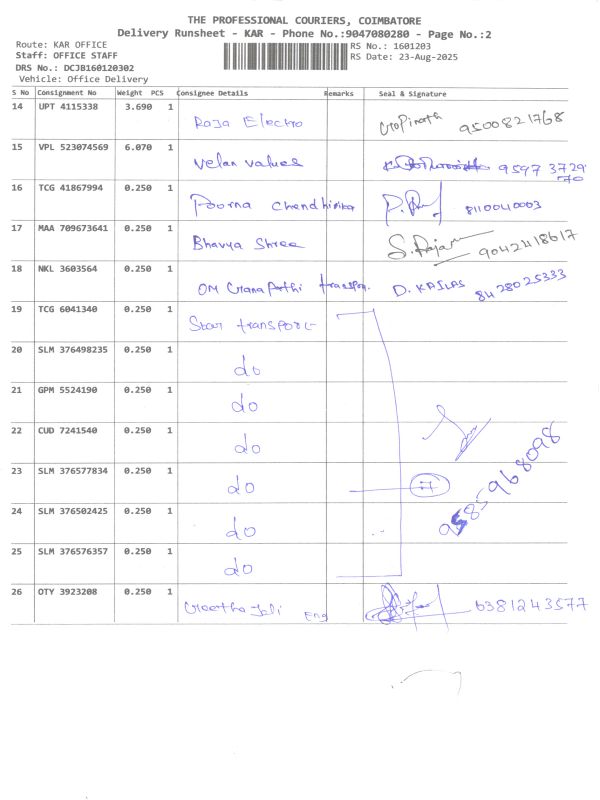 THE PROFESSIONAL COURIERS, COIMBATORE
Delivery Runsheet - KAR - Phone No.:9047080280 - Page No.:2
Route: KAR OFFICE RS No.: 1601203
Staff: OFFICE STAFF RS Date: 23-Aug-2025
DRS No.: DCJB160120302
Vehicle: Office Delivery
S No Consignment No Weight PCS Consignee Details Remarks Seal & Signature
14 UPT 4115338 3.690 1 Roja Electro Gopinath 9500821768
15 VPL 523074569 6.070 1 Velan Values 9597 3729
70
16 TCG 41867994 0.250 1 Poorna Chendhirika 8110040003
17 MAA 709673641 0.250 1 Bhavya Shree S. Rajan 9042418617
18 NKL 3603564 0.250 1 OM Ganapathi transpor. D. KAILAS 8428025333
19 TCG 6041340 0.250 1 Star transport
20 SLM 376498235 0.250 1 do
21 GPM 5524190 0.250 1 do
22 CUD 7241540 0.250 1 do
23 SLM 376577834 0.250 1 do 7
24 SLM 376502425 0.250 1 do
25 SLM 376576357 0.250 1 do
26 OTY 3923208 0.250 1 Geetha Eng 6381243577